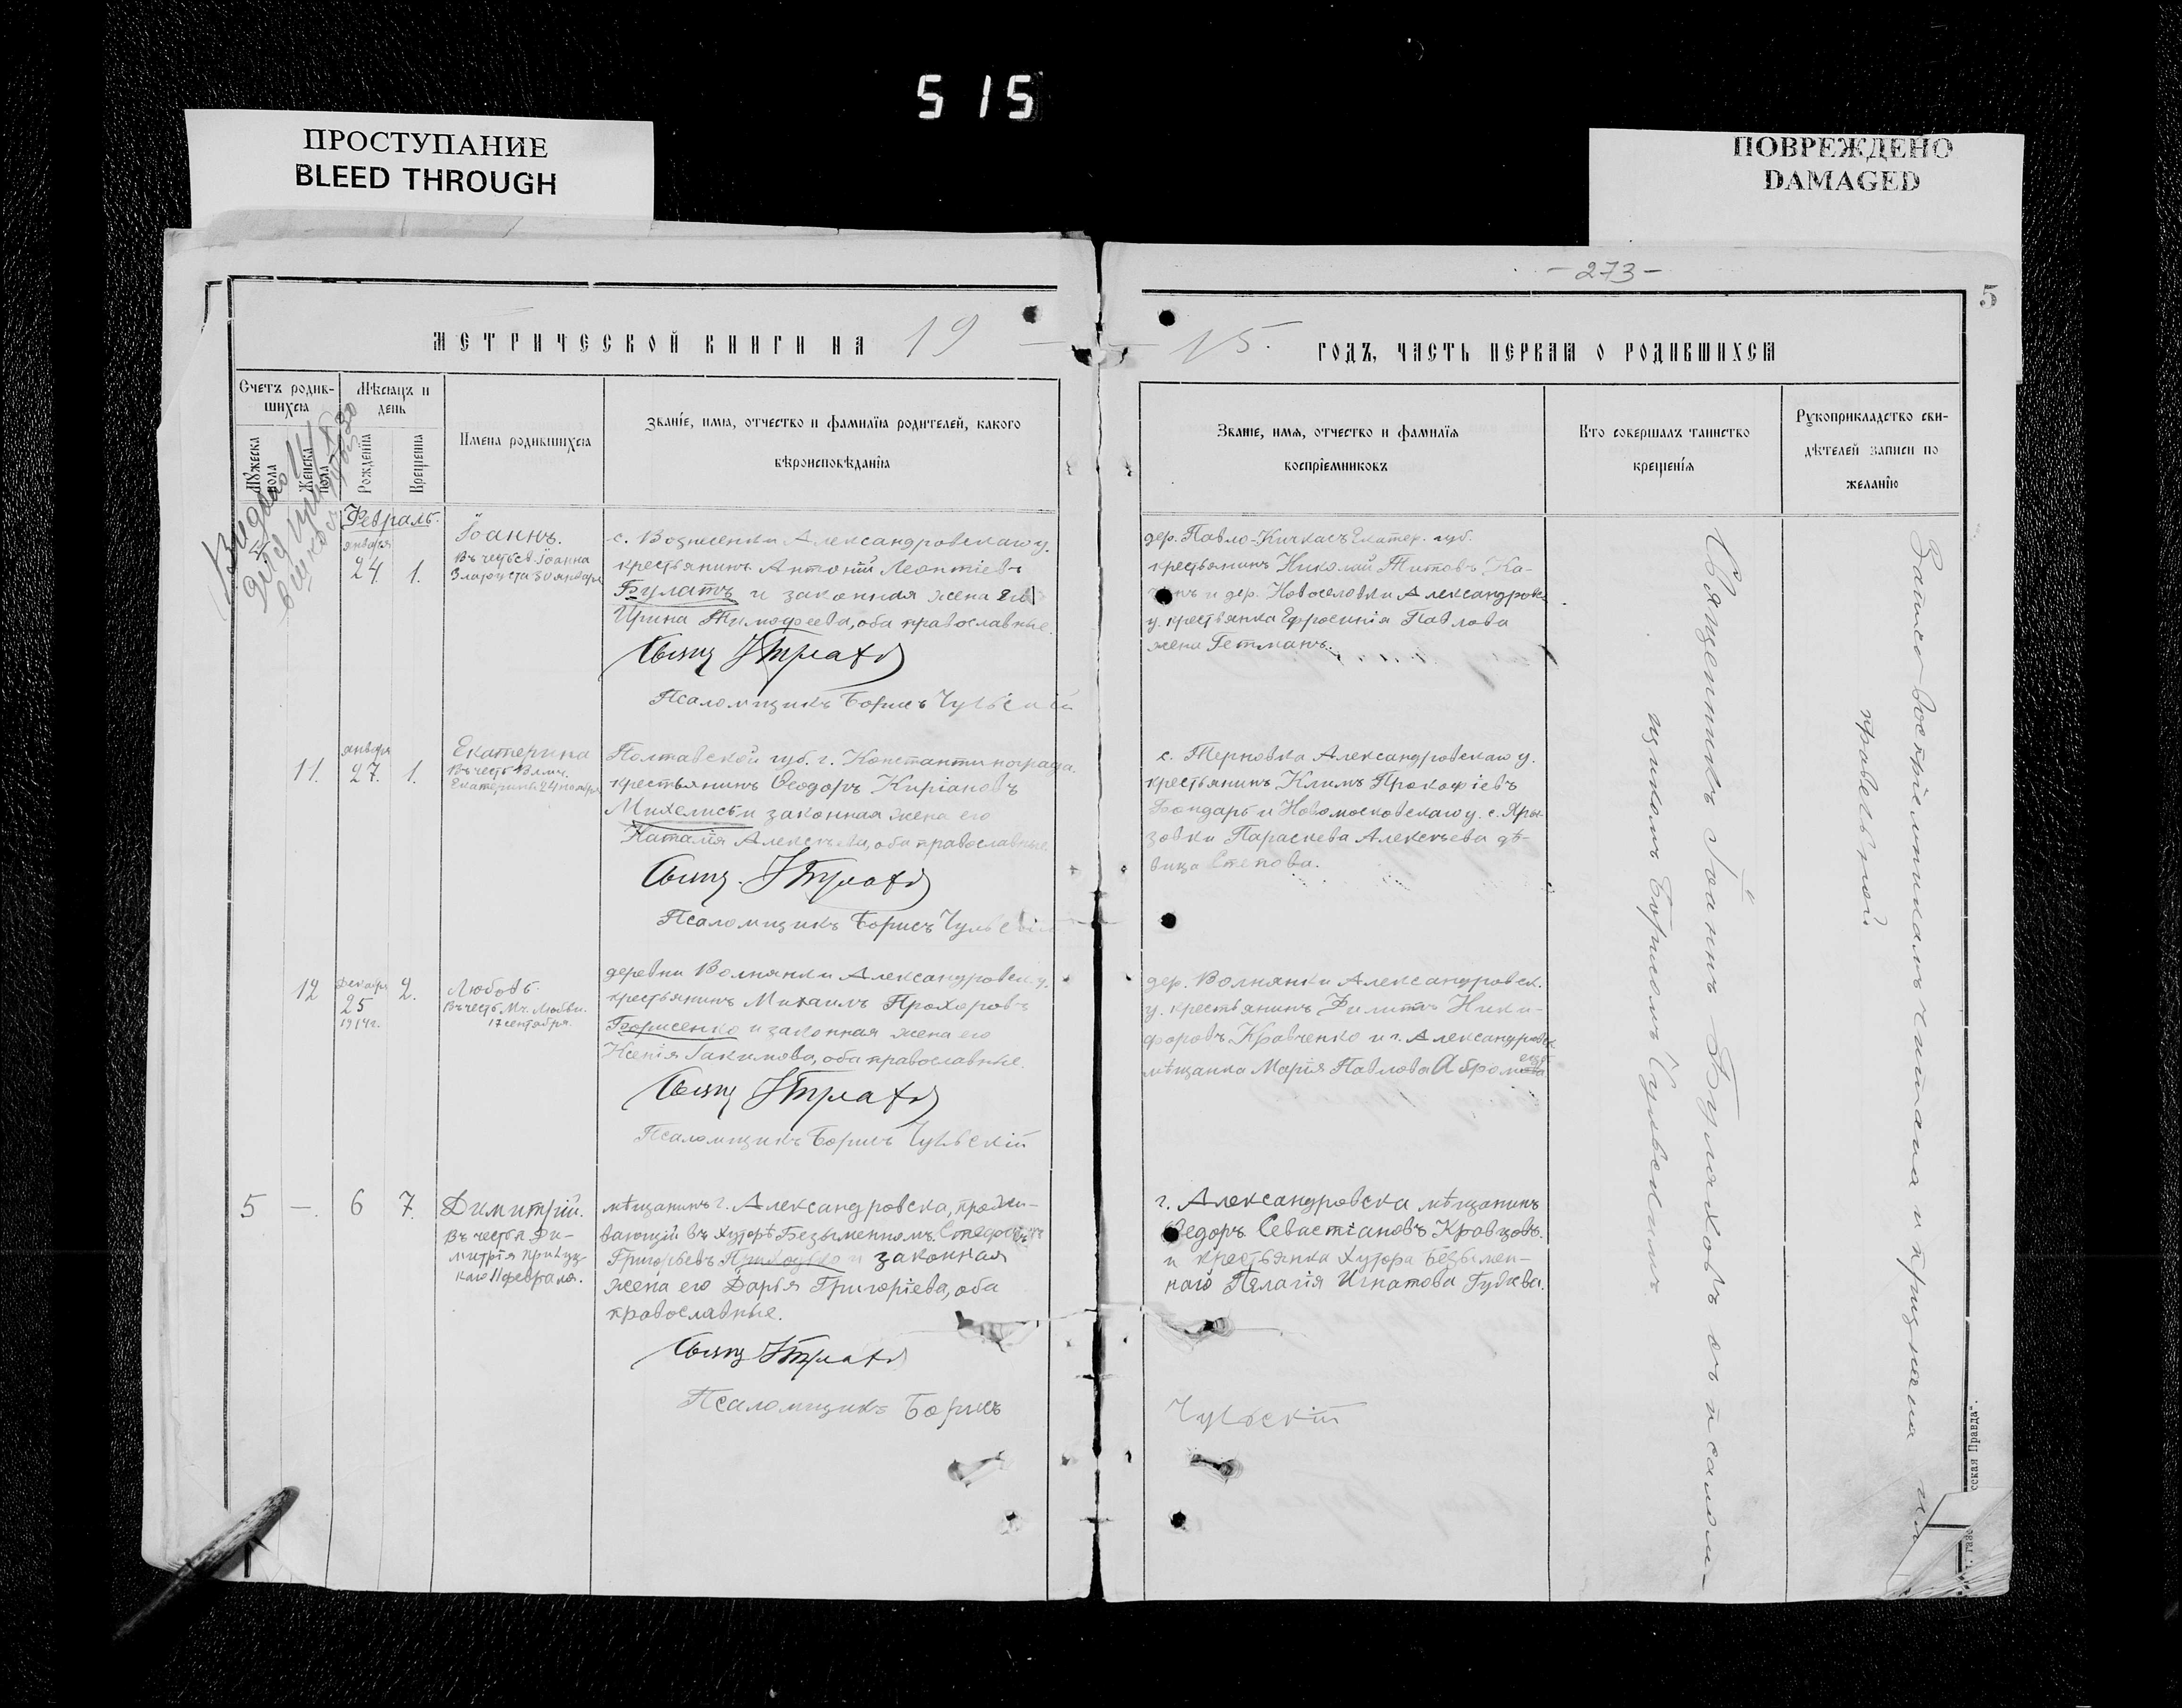 515
ПРОСТУПАНИЕ
BLEED THROUGH
ПОВРЕЖДЕНО
DAMAGED
-273-
5
МЕТРИЧЕСКОЙ КНИГИ НА 19
15. ГОДЪ, ЧАСТЬ ПЕРВАЯ О РОДИВШИХСЯ
Счетъ родив-
шихся
Мѣсяцъ и
день
Мужеска
пола
Женска
пола
Рожденія
Крещенія
Имена родившихся
Званіе, имя, отчество и фамилія родителей, какого
вѣроисповѣданія
Званіе, имя, отчество и фамилія
воспріемниковъ
Кто совершалъ таинство
крещенія
Рукоприкладство сви-
дѣтелей записи по
желанію
Февраль.
января
24 1.
Іоаннъ.
Въ честь св. Іоанна
Златоуста 30 января
с. Вознесенки Александровскаго у.
крестьянинъ Антоній Леонтіевъ
Булатъ и законная жена его
Ирина Тимофеева, оба православные.
Псаломщикъ Борисъ Чульскій
дер. Павло-Кичкасъ Екатер. губ.
крестьянинъ Николай Титовъ
и дер. Новоселовки Александровск.
у. крестьянка Ефросинія Павлова
жена Гетманъ.
11. января
27. 1.
Екатерина
Въ честь Влмч.
Екатерины 24 ноября
Полтавской губ. г. Константинограда
крестьянинъ Ѳеодоръ Кипріановъ
Михелисъ и законная жена его
Наталія Алексѣева, оба православные.
Псаломщикъ Борисъ Чульскій
с. Терновка Александровскаго у.
крестьянинъ Климъ Прокофіевъ
Бондарь и Новомосковскаго у. с.
Параскева Алексѣева дѣ-
вица Степова.
12 Декабря
25 2.
1914 г.
Любовь.
Въ честь Мч. Любви.
17 сентября.
деревни Волнянки Александровск. у.
крестьянинъ Михаилъ Прохоровъ
Борисенко и законная жена его
Ксенія Іакимова, оба православные.
Псаломщикъ Борисъ Чульскій
дер. Волнянки Александровск.
у. крестьянинъ Филиппъ Ники-
форовъ Кравченко и г. Александровск
мѣщанка Марія Павлова
5 —. 6 7.
Димитрій.
Въ честь Ди-
митрія Прилуц-
каго 11 февраля.
мѣщанинъ г. Александровска, прожи-
вающій въ хуторѣ Безыменномъ.
Григорьевъ Приходько и законная
жена его Дарья Григоріева, оба
православные.
Псаломщикъ Борисъ
Чульскій
г. Александровска мѣщанинъ
Ѳедоръ Севастіановъ Кравцовъ.
и крестьянка хутора Безымен-
наго Пелагія Игнатова
Священникъ Іоаннъ Булаховъ съ псалом-
щикомъ Борисомъ Чульскимъ.
Запись воспріемникамъ читана и признана
правильной
ская Правда".